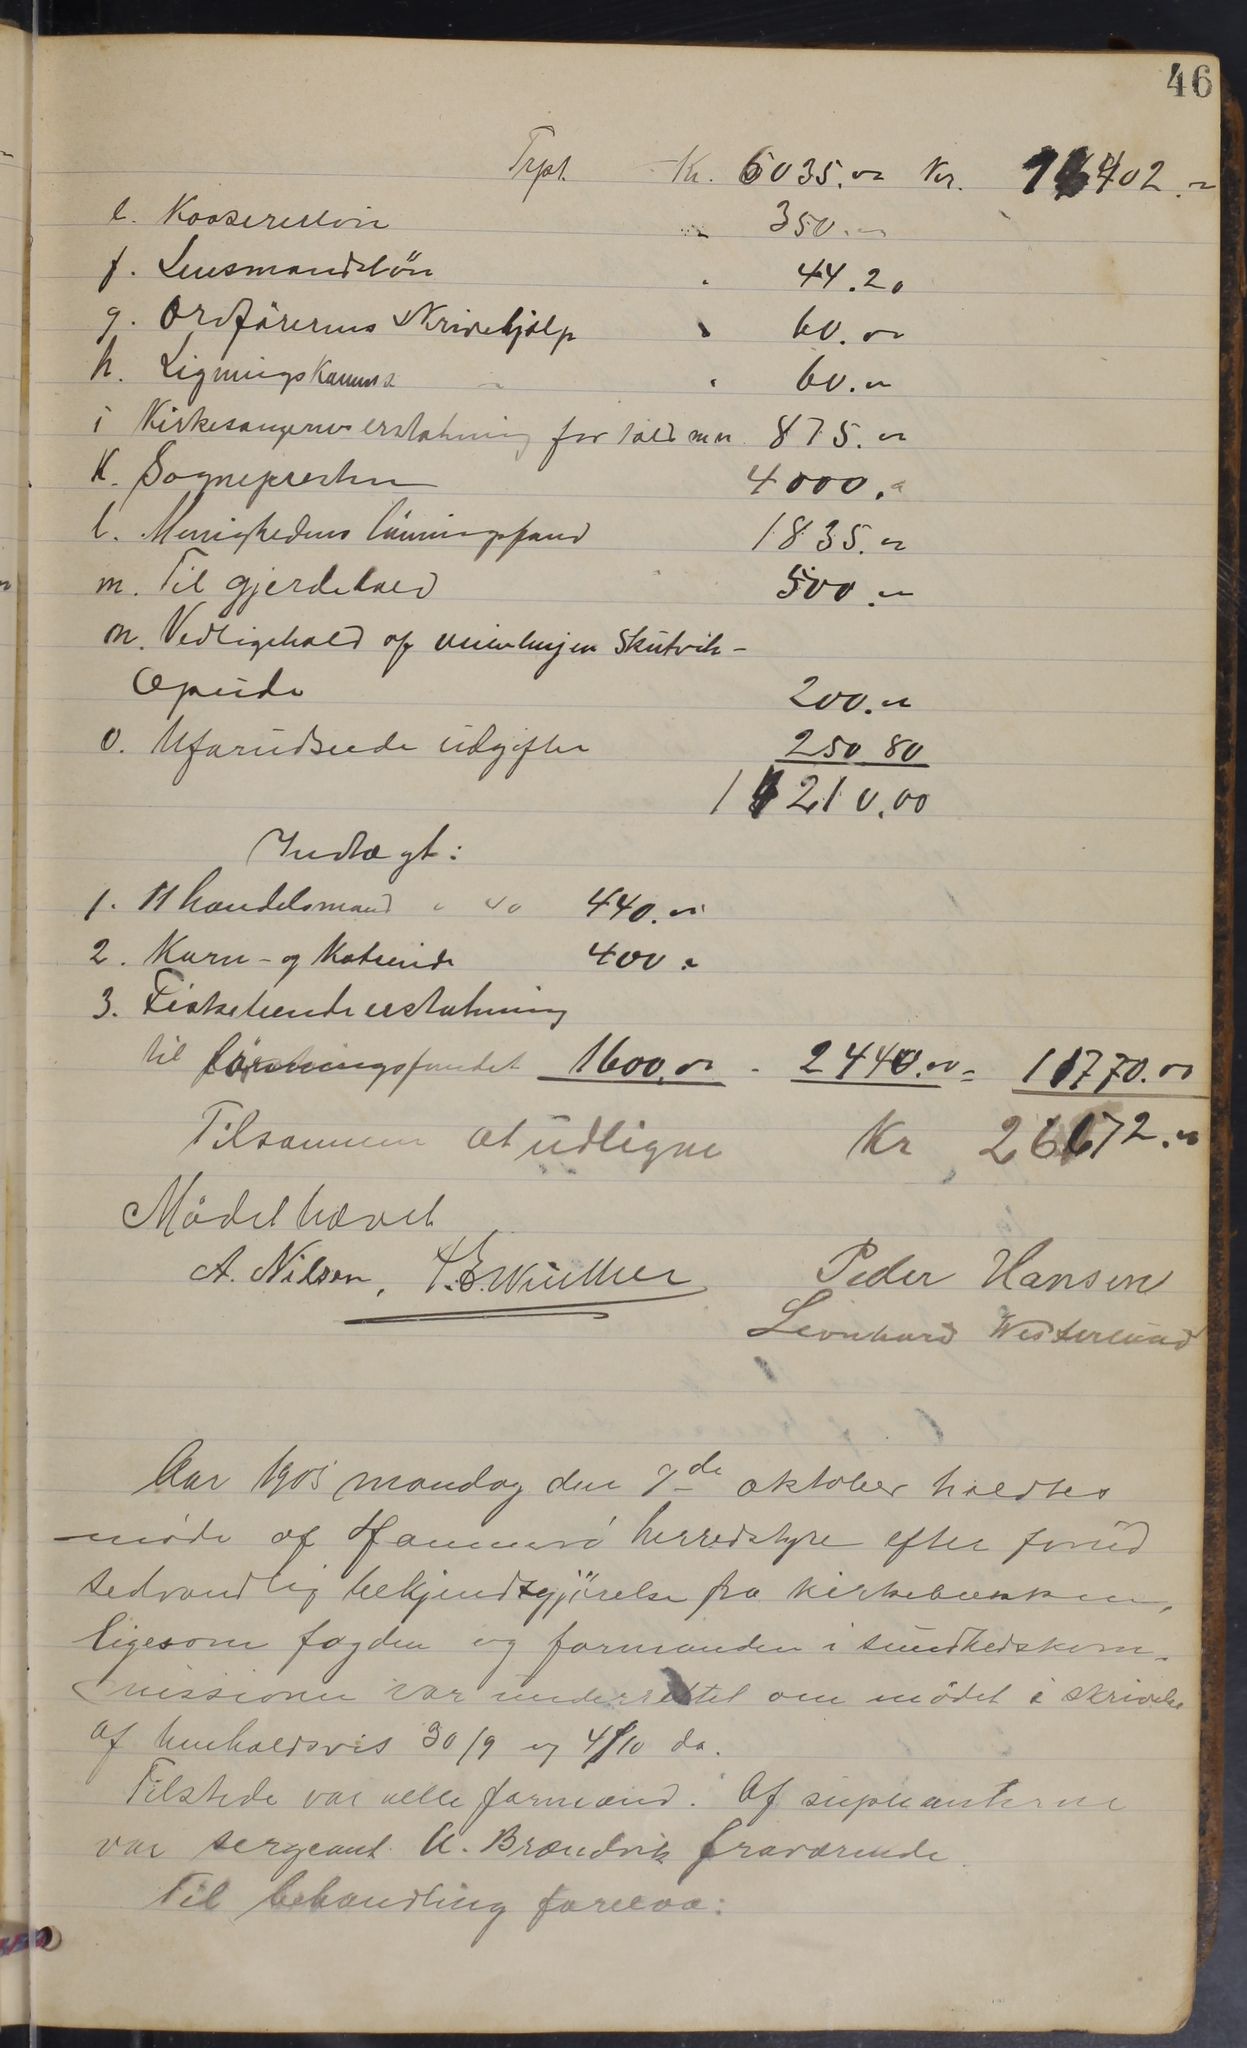 46
Trpt. Kr. 6035.00 Kr. 402.-
e. Kassererløn " 350.-
f. Lensmandsløn " 44.20
g. Ordførerens Skrivehjælp " 60.00
h. Ligningskomms " " 60.-
i Kirkesangerens erstatning for 875.-
k. Sognepresten 4000.-
l. Menighedens lønningsfond 1835.-
m. Til gjerdehold 500.-
n. Vedligehold af veien Skutvik-
Opeide 200.-
o. Uforudseede udgifter 250 80
210.00
Indtægt:
1. 11 handelsmænd à 40 440.-
2. Korn- og Kvæg 400.-
3. Fisketiendeerstatning
til lønningsfondet 1600.00 - 2440.00 = 11770.00
Tilsammen at udligne Kr 26172.-
Mødet hævet
A. Nilsen. Peder Hansen
Leonhard Westerlund
Aar 1905 mandag den de oktober holdtes
møde af Hammerø herredstyre efter forud
sedvandlig bekjendtgjørelse fra kirkebakken,
ligesom fogden og formanden i sundhedskom-
missionen var underrettet om mødet i skrivelse
af henholdsvis 30/9 og 4/10 ds.
Tilstede var alle formænd. Af supleanterne
var sergeant A. Brændvik fraværende.
Til behandling forelaa: